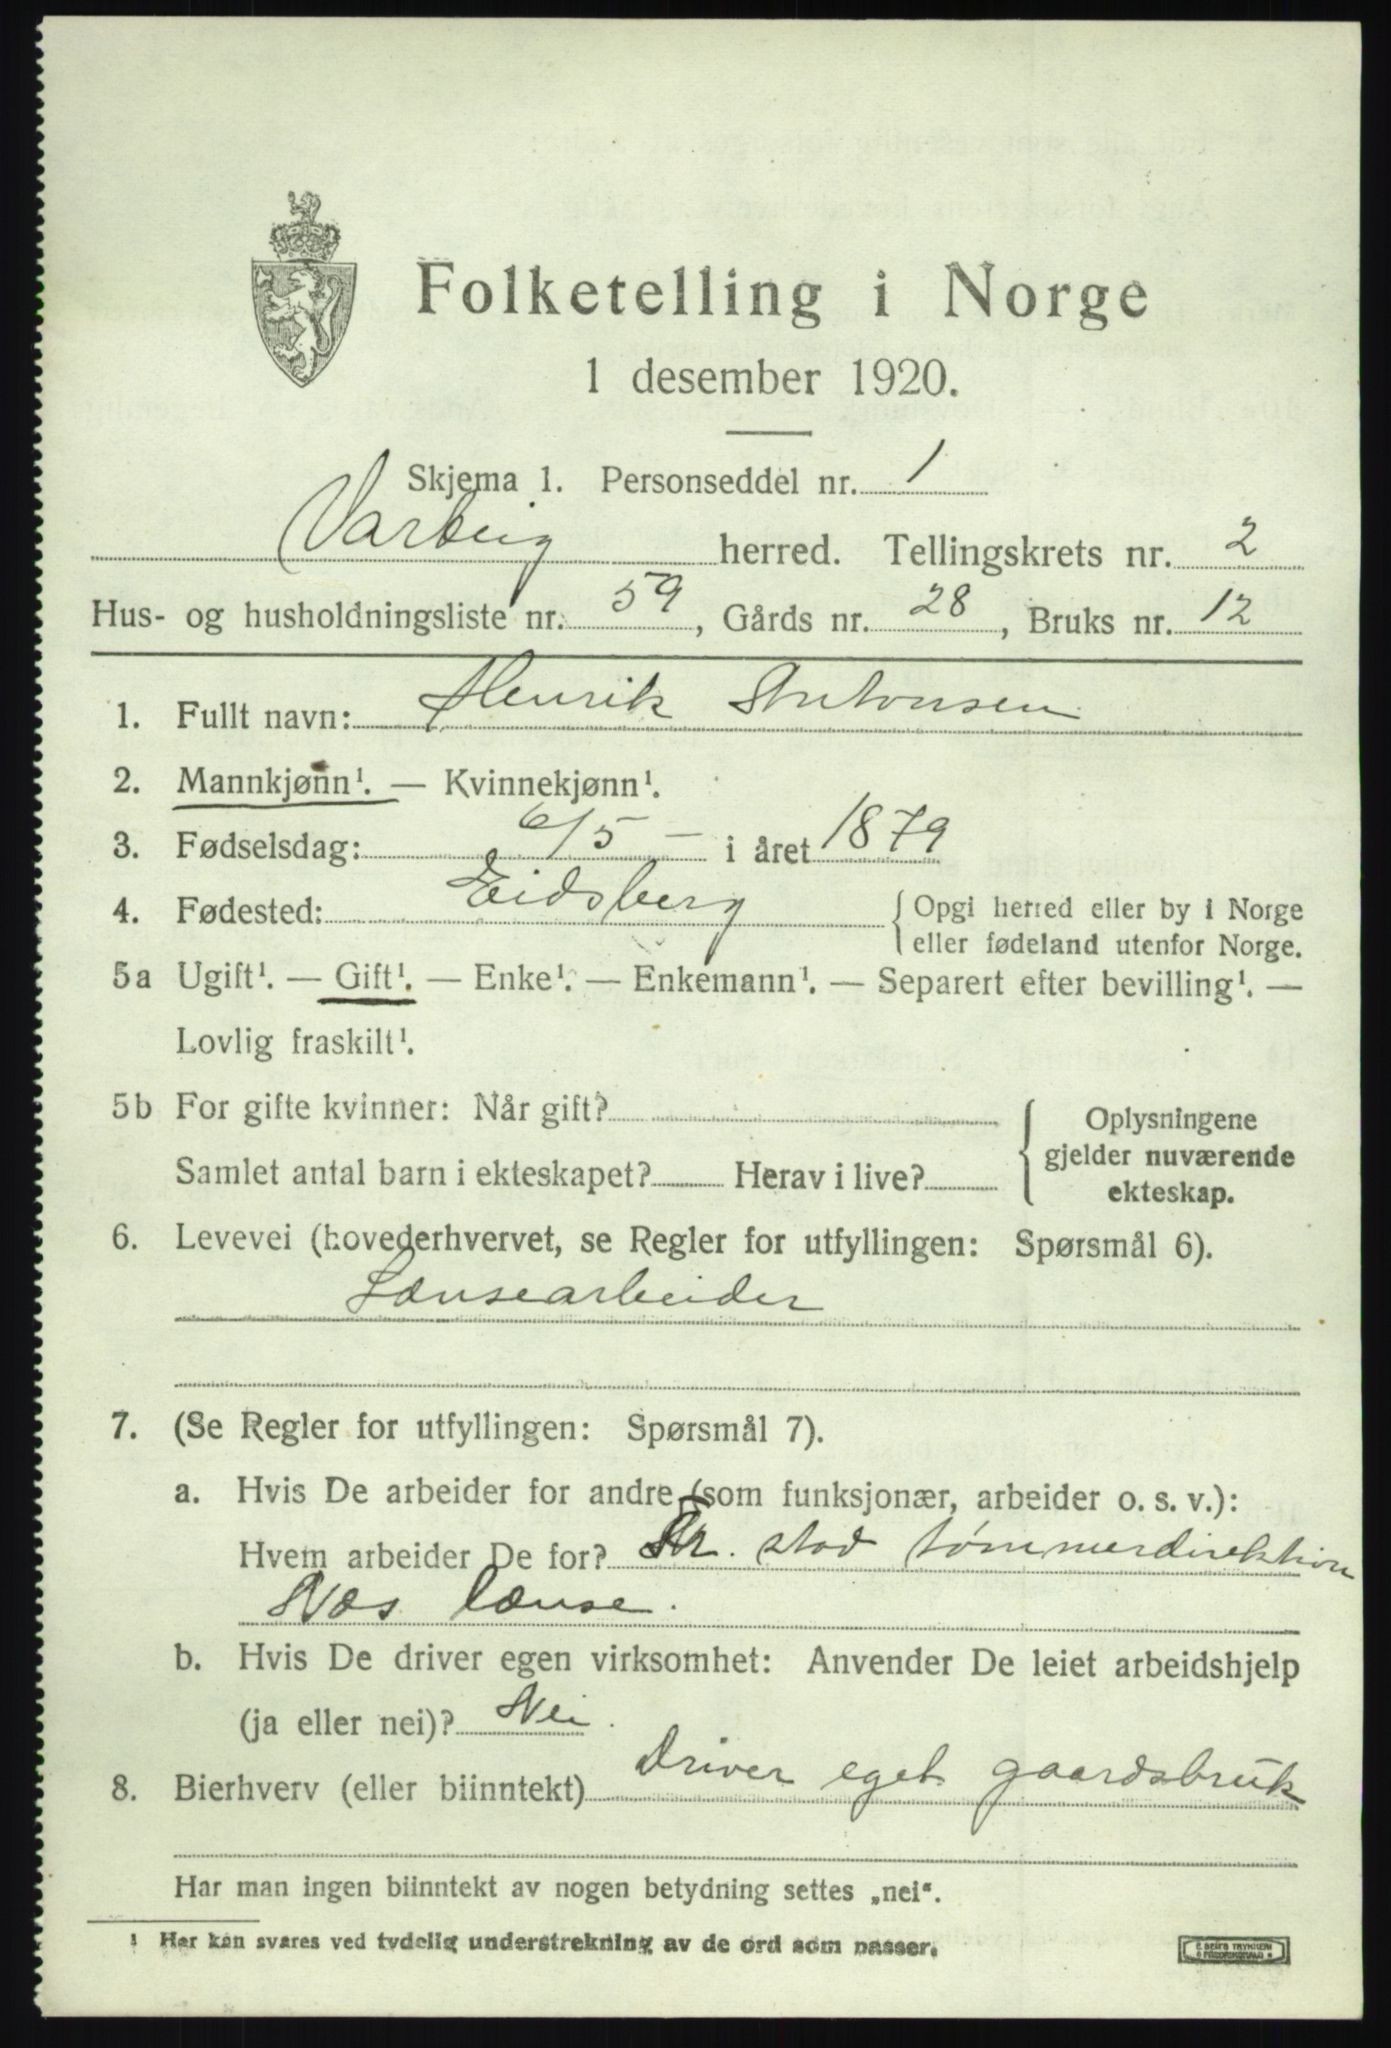 Folketelling i Norge
1 desember 1920.
Skjema 1. Personseddel nr. 1
Varteig herred. Tellingskrets nr. 2
Hus- og husholdningsliste nr. 59, Gårds nr. 28, Bruks nr. 12
1. Fullt navn: Henrik Antonsen
2. Mannkjønn¹. — Kvinnekjønn¹.
3. Fødselsdag: 6/5 - i året 1879
4. Fødested: Eidsberg { Opgi herred eller by i Norge
eller fødeland utenfor Norge.
5a Ugift¹. — Gift¹. — Enke¹. — Enkemann¹. — Separert efter bevilling¹. —
Lovlig fraskilt¹.
5b For gifte kvinner: Når gift?
Samlet antal barn i ekteskapet? Herav i live?
Oplysningene
gjelder nuværende
ekteskap.
6. Levevei (hovederhvervet, se Regler for utfyllingen: Spørsmål 6).
Lænsearbeider
7. (Se Regler for utfyllingen: Spørsmål 7).
a. Hvis De arbeider for andre (som funksjonær, arbeider o. s. v.):
Hvem arbeider De for? Fr. stad tømmerdirektion
Næs lænse.
b. Hvis De driver egen virksomhet: Anvender De leiet arbeidshjelp
(ja eller nei)? Nei.
8. Bierhverv (eller biinntekt) Driver eget gaardsbruk
Har man ingen biinntekt av nogen betydning settes „nei“.
¹ Her kan svares ved tydelig understrekning av de ord som passer.